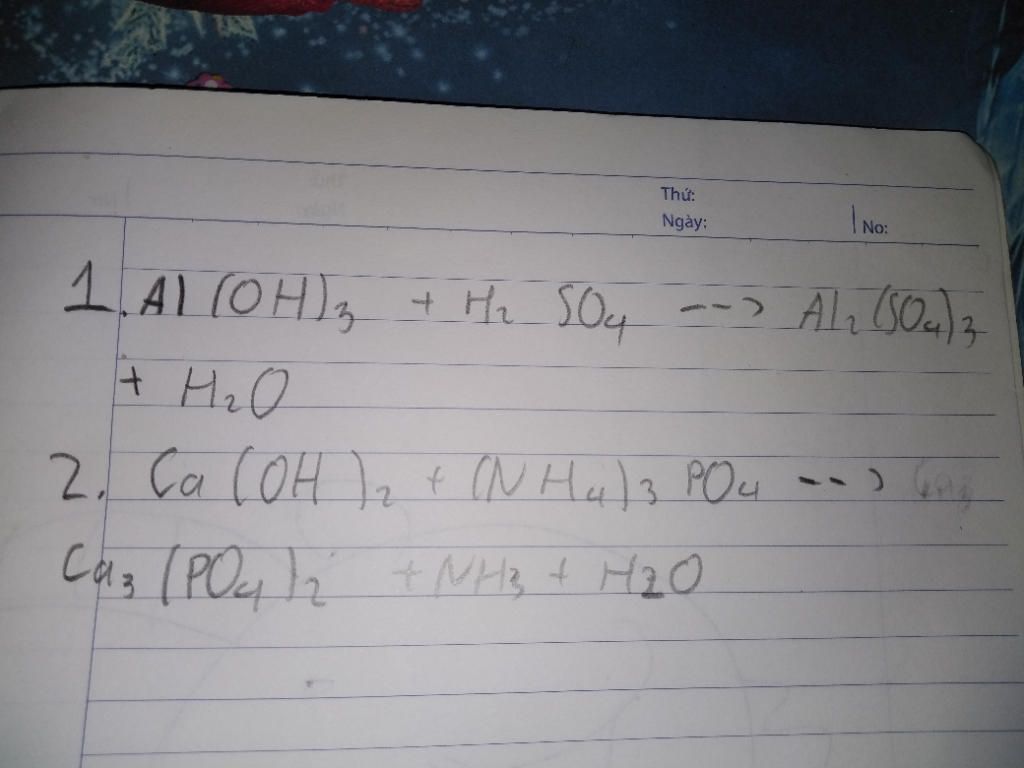 Thứ:
Ngày:
No:
1. Al(OH)₃ + H₂SO₄ --> Al₂(SO₄)₃
+ H₂O
2. Ca(OH)₂ + (NH₄)₃PO₄ -->
Ca₃(PO₄)₂ + NH₃ + H₂O